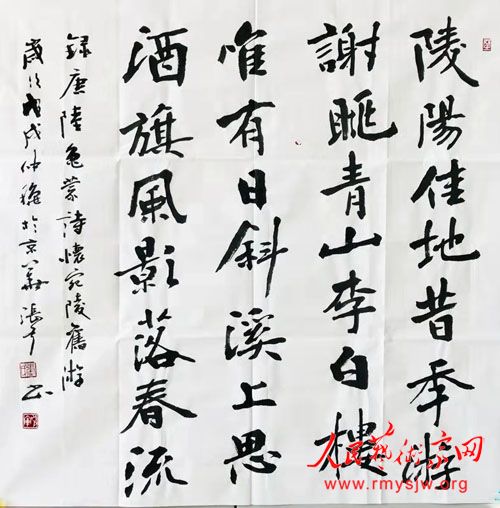 陵陽佳地昔年游
謝眺青山李白樓
唯有日斜溪上思
酒旗風影落春流
録唐陸龜蒙詩懷宛陵舊游
歲次戊戌仲穐於京華張才书
人民藝術家网
www.rmysjw.org